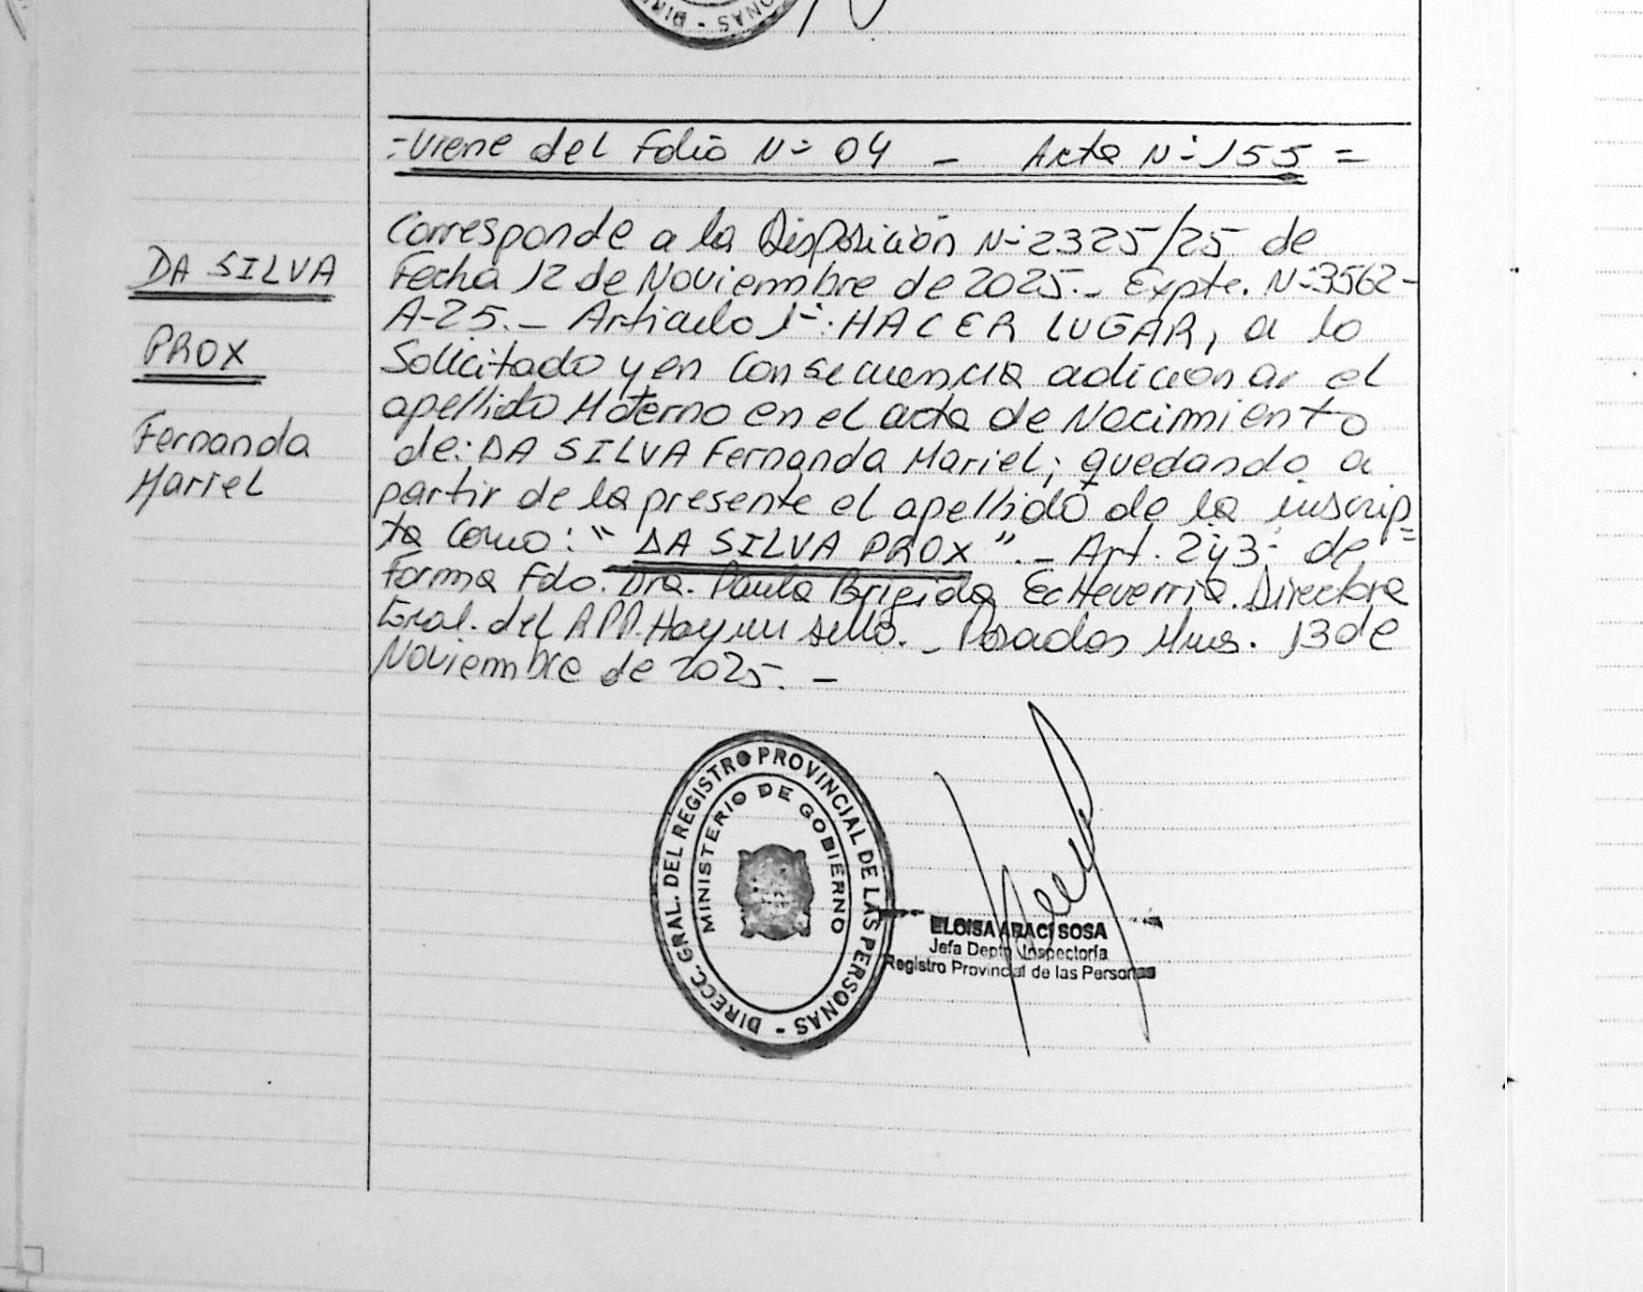 DIRE - SONAS
=Viene del Folio N= 04 - Acta N=155=
DA SILVA
PROX
Fernanda
Mariel
Corresponde a la Disposición N=2325/25 de
Fecha 12 de Noviembre de 2025.- Expte. N=3562-
A-25.- Articulo 1=: HACER LUGAR, a lo
Solicitado y en Consecuencia adicionar el
apellido Materno en el acta de Nacimiento
de: DA SILVA Fernanda Mariel; quedando a
partir de la presente el apellido de la inscrip=
ta como: "DA SILVA PROX".- Art. 2y3= de
Forma Fdo. Dra. Paula Brigida Echeverria. Directora
Gral. del RPP. Hay un sello.- Posadas Mnes. 13 de
Noviembre de 2025.-
DIRECC. GRAL. DEL REGISTRO PROVINCIAL DE LAS PERSONAS -
MINISTERIO DE GOBIERNO
ELOISA ARACI SOSA
Jefa Depto Inspectoría
Registro Provincial de las Personas